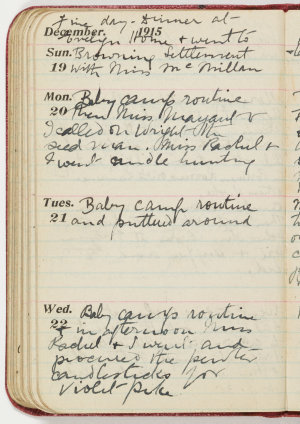 Fine day. Dinner at
Evelyn Home & went to
December, 1915
Sun. Browning Settlement
19 with Miss McMillan
Mon. Baby camp routine
20 Then Miss Maynard &
I called on Wright the
seed man. Miss Rachel &
I went candle hunting
Tues. Baby camp routine
21 and putters around
Wed. Baby camp routine
22 & in afternoon Miss
Rachel & I went and
procured the pewter
candlesticks for
Violet Pike